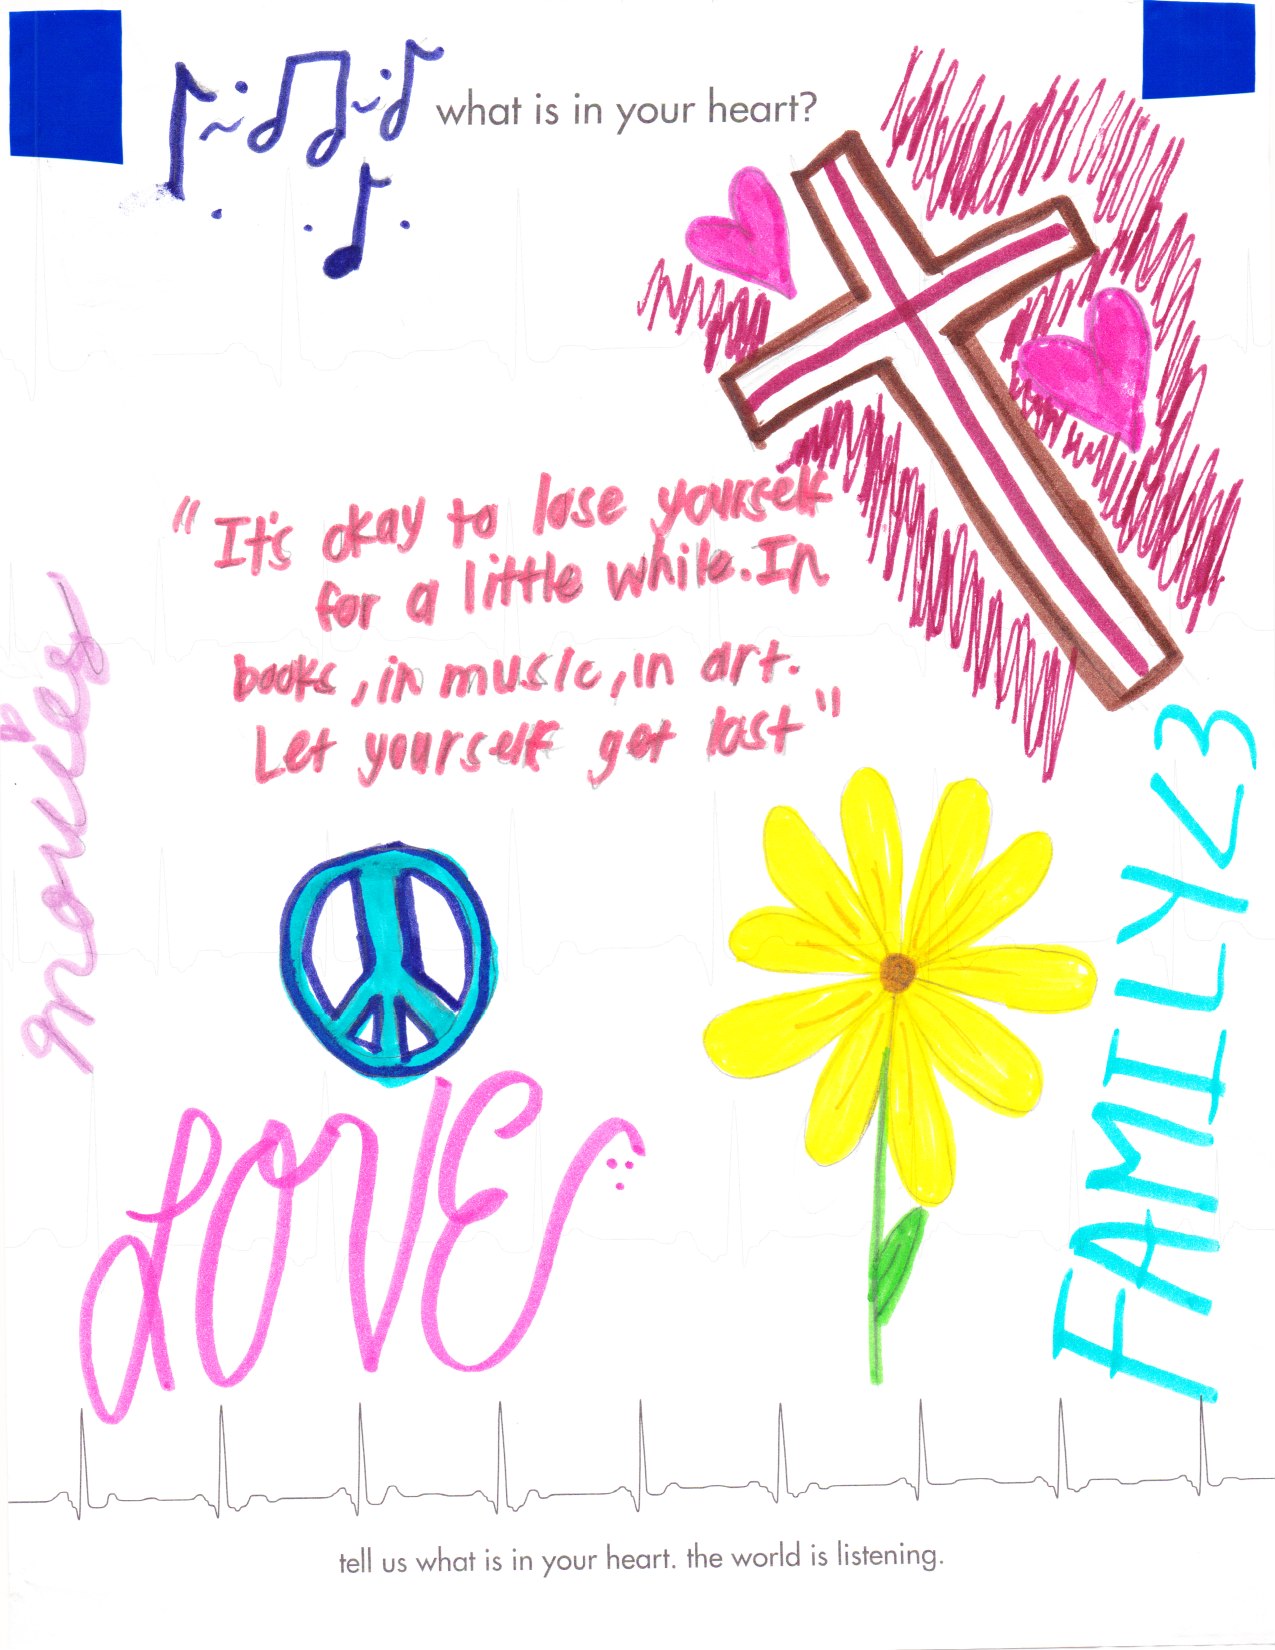 what is in your heart?
"It's okay to lose yourself
for a little while. In
books, in music, in art.
Let yourself get lost"
movies
FAMILY <3
LOVE
tell us what is in your heart. the world is listening.